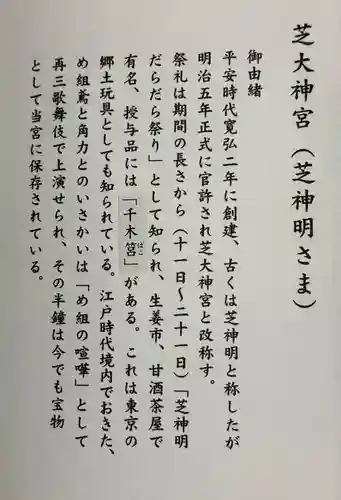 芝大神宮（芝神明さま）
御由緒
平安時代寛弘二年に創建、古くは芝神明と称したが
明治五年正式に官許され芝大神宮と改称す。
祭礼は期間の長さから（十一日～二十一日）「芝神明
だらだら祭り」として知られ、生姜市、甘酒茶屋で
有名、授与品には「千木筥」がある。これは東京の
ばこ
郷土玩具としても知られている。江戸時代境内でおきた、
め組鳶と角力とのいさかいは「め組の喧嘩」として
再三歌舞伎で上演せられ、その半鐘は今でも宝物
として当宮に保存されている。